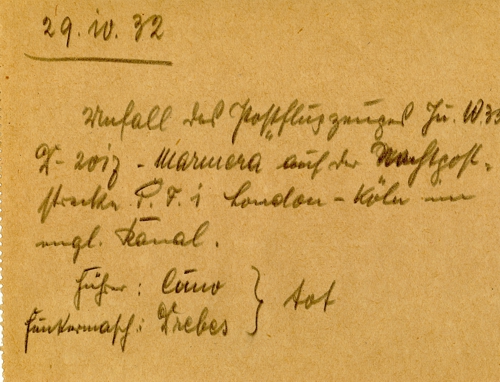 29. IV. 32
Unfall des Postflugzeuges Ju. W. 33
D-2017 - "Marmera auf der Nachtpost-
strecke P. T. 1 London - Köln im
engl. Kanal.
Führer: Cuno } tot
Funkermasch: Drebes